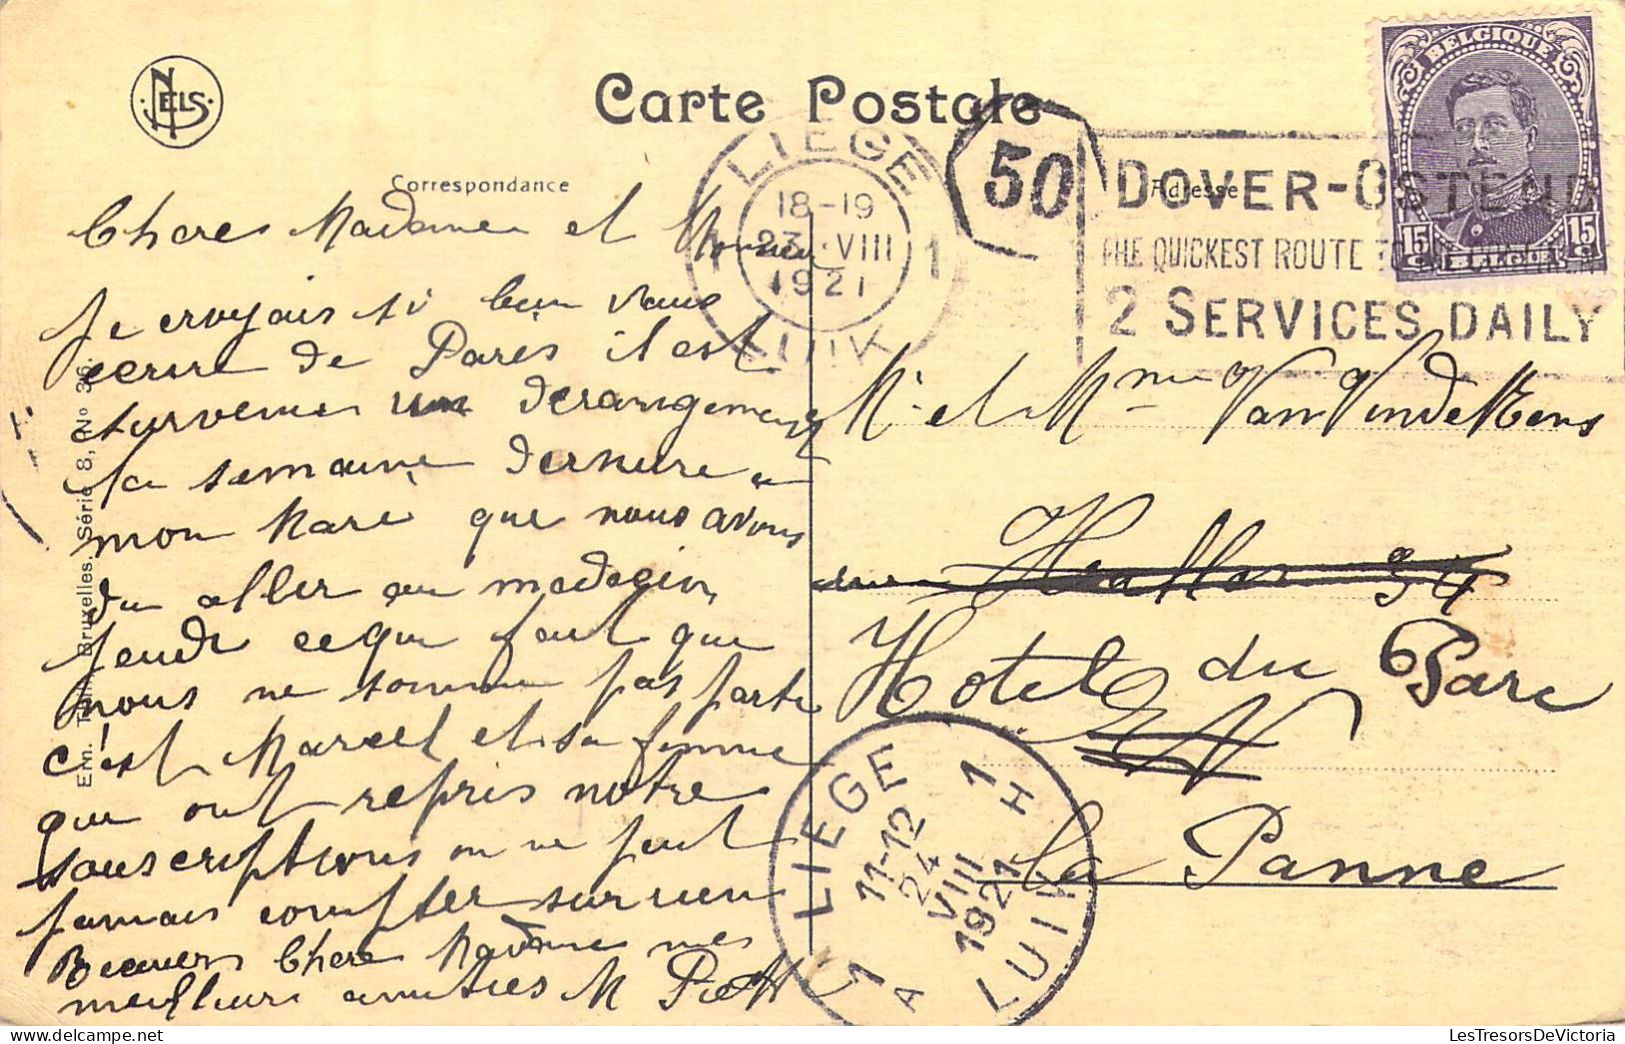 NELS
Carte Postale
Correspondance
Adresse
BELGIQUE
15 15
BELGIE
LIEGE
18-19
23 VIII
1921
1 1
LUIK
50
DOVER-OSTEND
THE QUICKEST ROUTE TO
2 SERVICES DAILY
Cheres Madame et Monsieur
Je croyais si bien vous
ecrire de Paris il est
survenu un derangement
la semaine derniere a
mon Mari que nous avons
du aller au medecin
jeudi ce qui fait que
nous ne somme pas parti
c'est Marcel et sa femme
qui ont repris notre
souscriptions on ne peut
jamais compter sur rien
Recevers Chere Madame mes
meilleurs amities M
Em. Bruxelles. Série 8, No 36.
Mr et Mme Van
34
Hotel du Parc
La Panne
LIEGE 1
11-12
24
VIII
1921
LUIK
1 A
H
LesTresorsDeVictoria